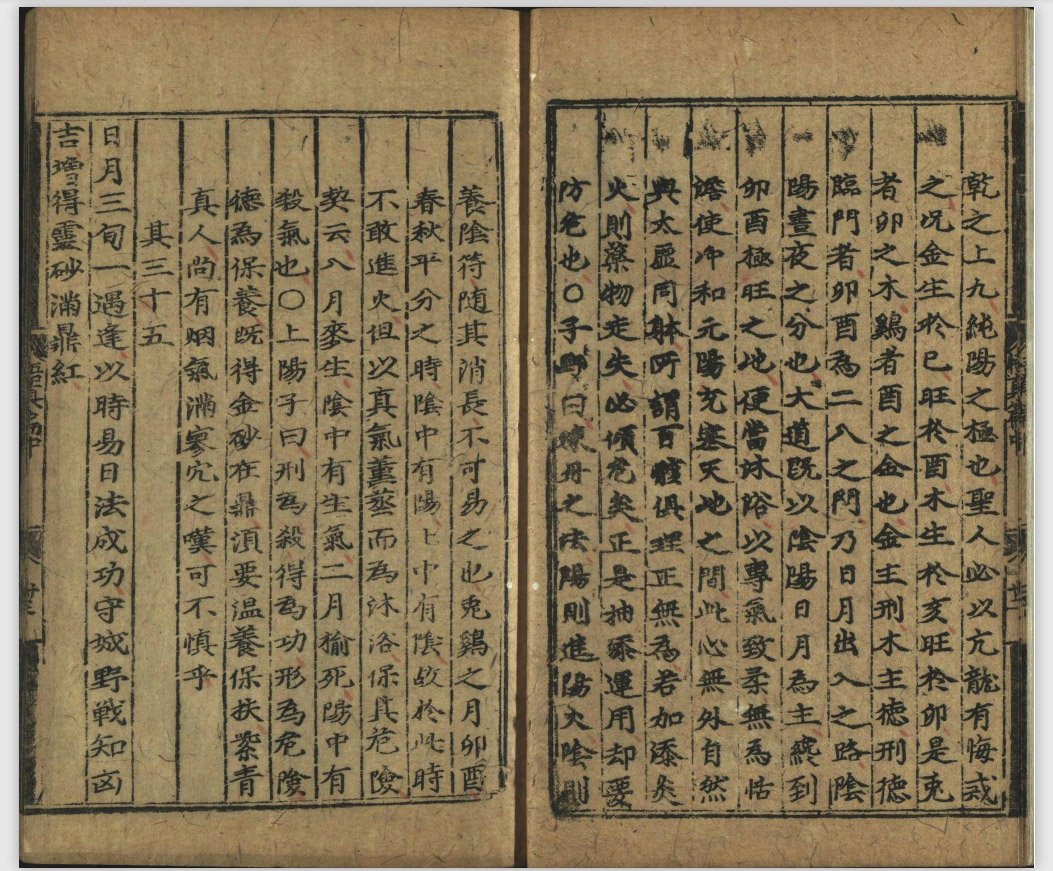 乾之上九純陽之極也聖人必以亢龍有悔戒
之况金生於巳旺於酉木生於亥旺於卯是兎
者卯之木鷄者酉之金也金主刑木主徳刑徳
臨門者卯酉為二八之門乃日月出入之路陰
陽晝夜之分也大道既以陰陽日月為主纔到
卯酉極旺之地便當沐浴以專氣致柔無為恬
澹使冲和元陽充塞天地之間此心無外自然
與太虛同躰所謂百骸俱理正無為若加添炎
火則藥物走失必傾危矣正是抽添運用却要
防危也○子野曰煉丹之法陽則進陽火陰則
養陰符随其消長不可易之也兎鷄之月卯酉
春秋平分之時陰中有陽陽中有陰故於此時
不敢進火但以真氣薰蒸而為沐浴保其危險
契云八月麥生陰中有生氣二月榆死陽中有
殺氣也○上陽子曰刑為殺得為功形為危險
徳為保養既得金砂在鼎湏要温養保扶紫青
真人尚有烟氣滿寥穴之嘆可不慎乎
其三十五
日月三旬一遇逢以時易日法成功守城野戰知㐫
吉增得靈砂滿鼎紅